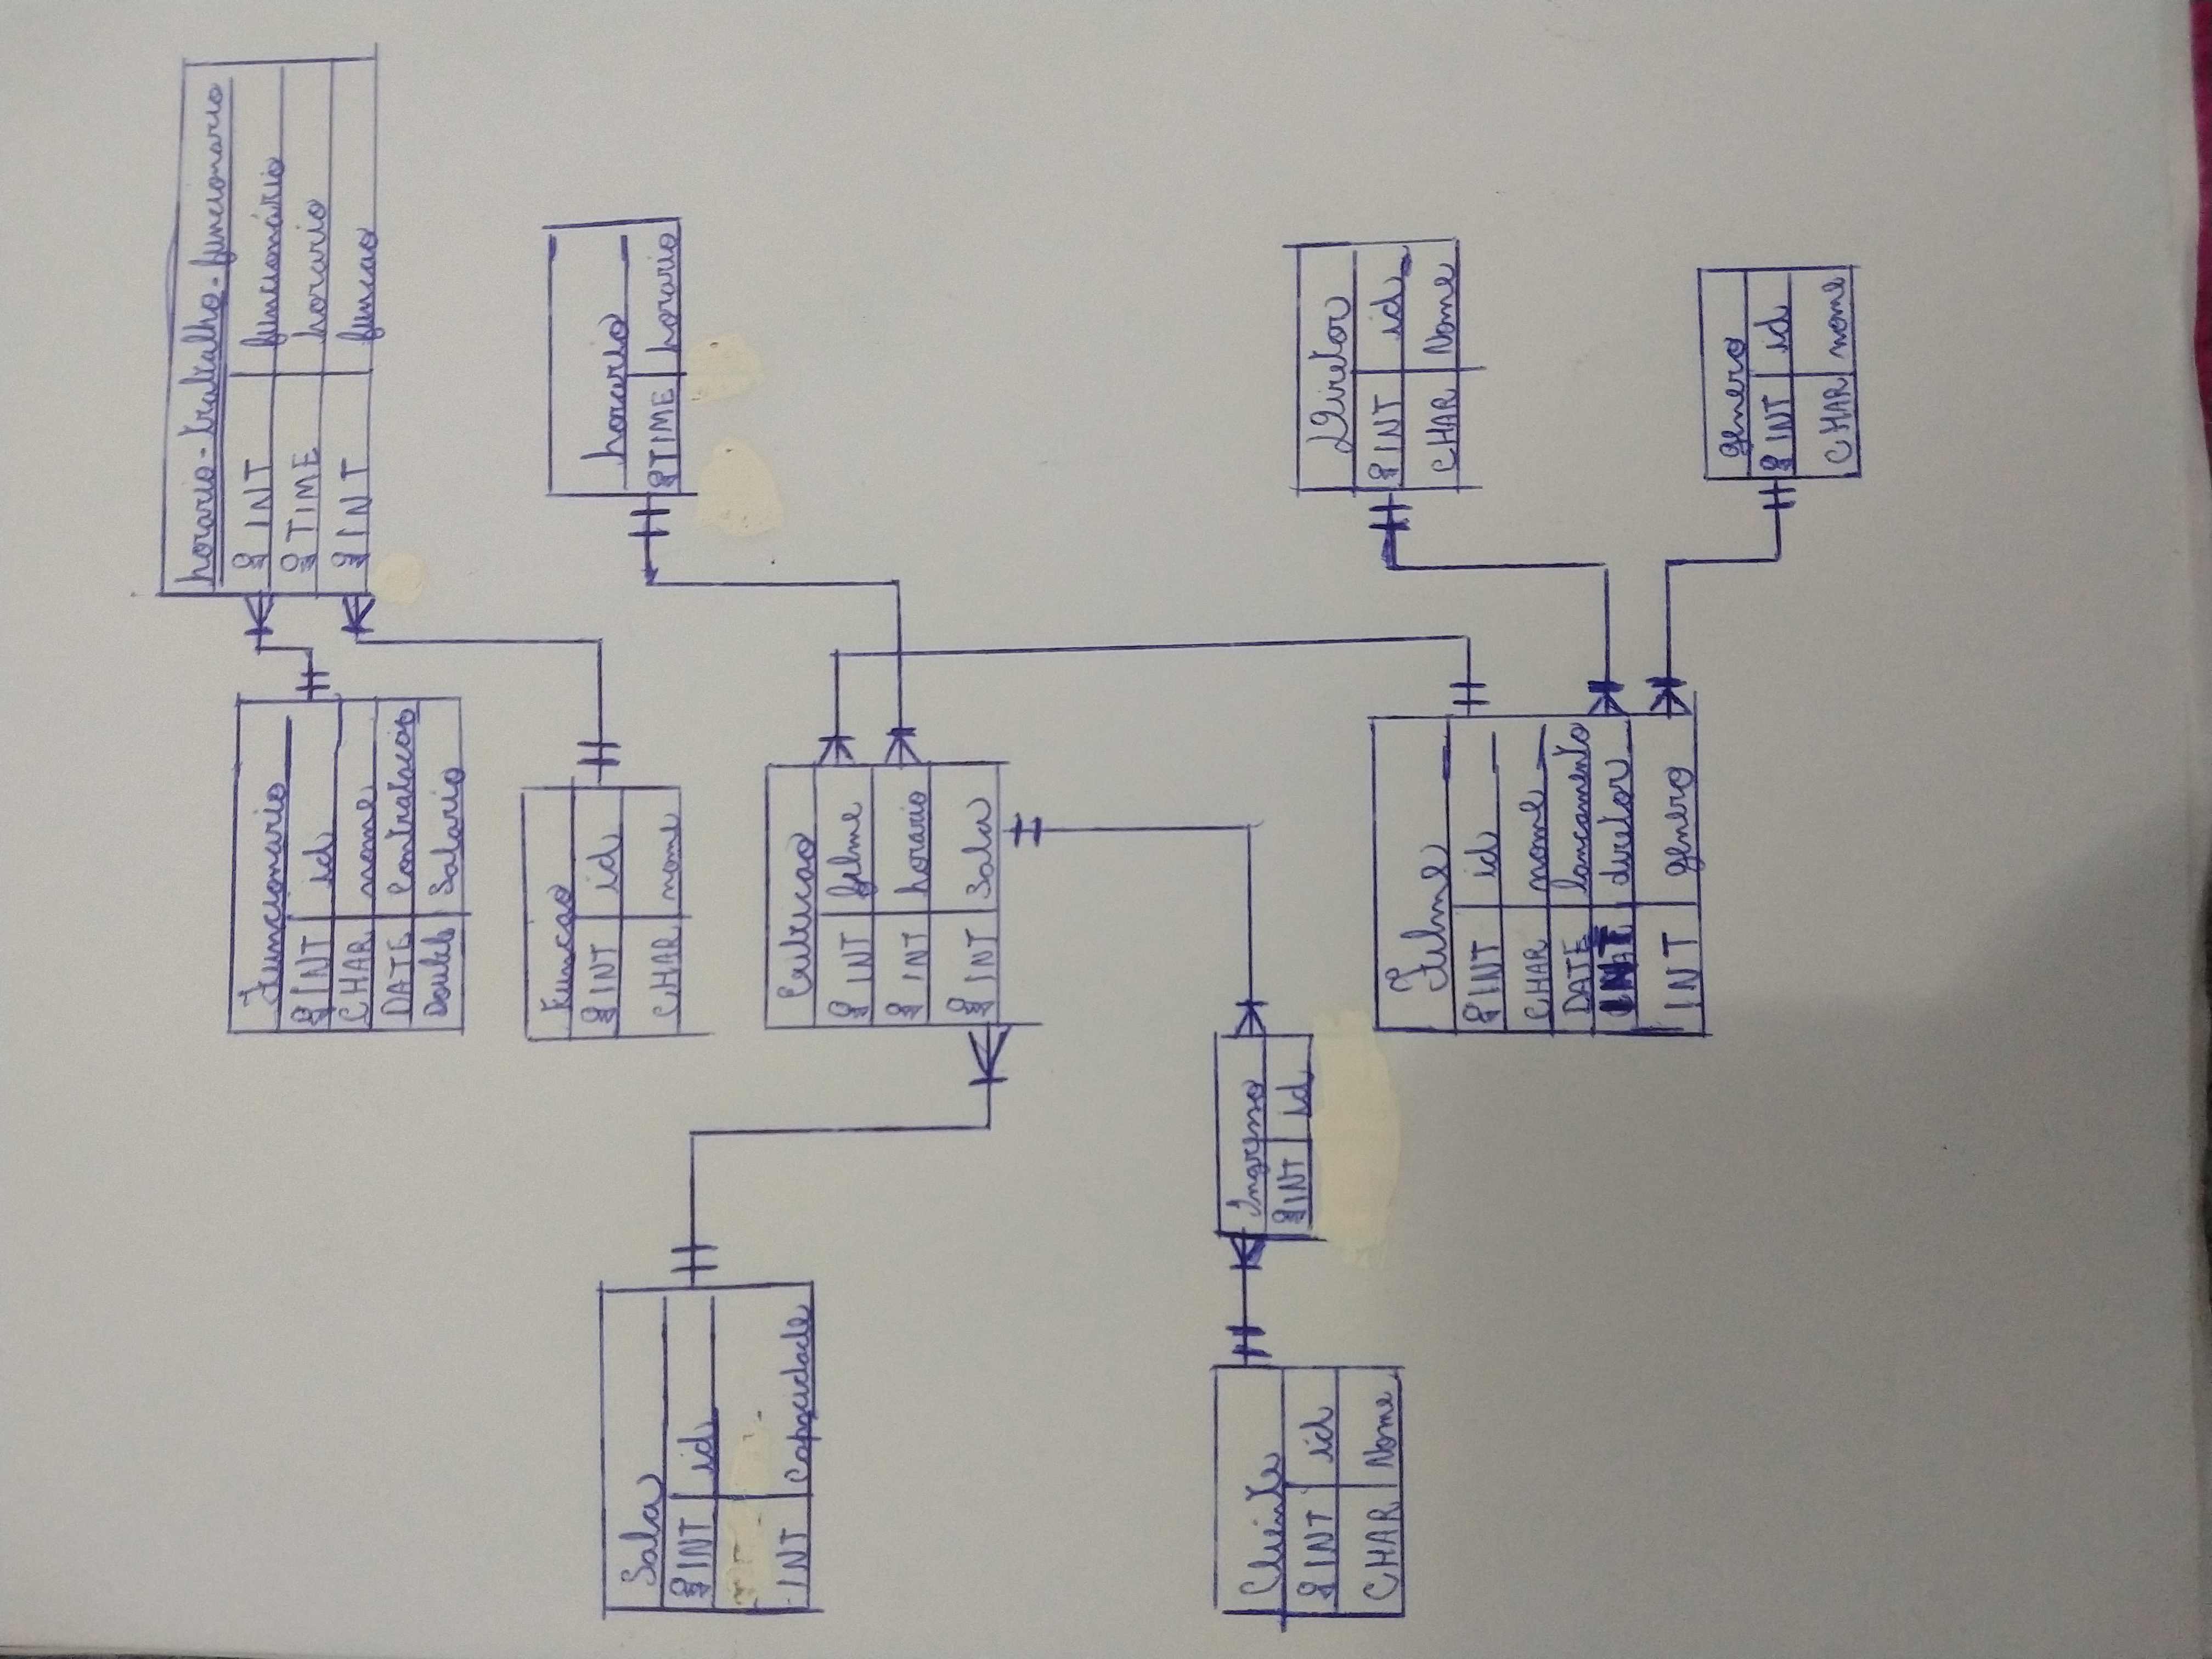 horario-trabalho-funcionario
INT funcionário
TIME horario
INT funcao
Funcionario
INT id
CHAR nome
DATE Contratacao
Double Salario
Funcao
INT id
CHAR nome
horario
TIME horario
Sala
INT id
INT Capacidade
Exibicao
INT filme
INT horario
INT Sala
Cliente
INT id
CHAR Nome
Ingresso
INT id
Diretor
INT id
CHAR Nome
Filme
INT id
CHAR nome
DATE lancamento
INT diretor
INT genero
genero
INT id
CHAR nome